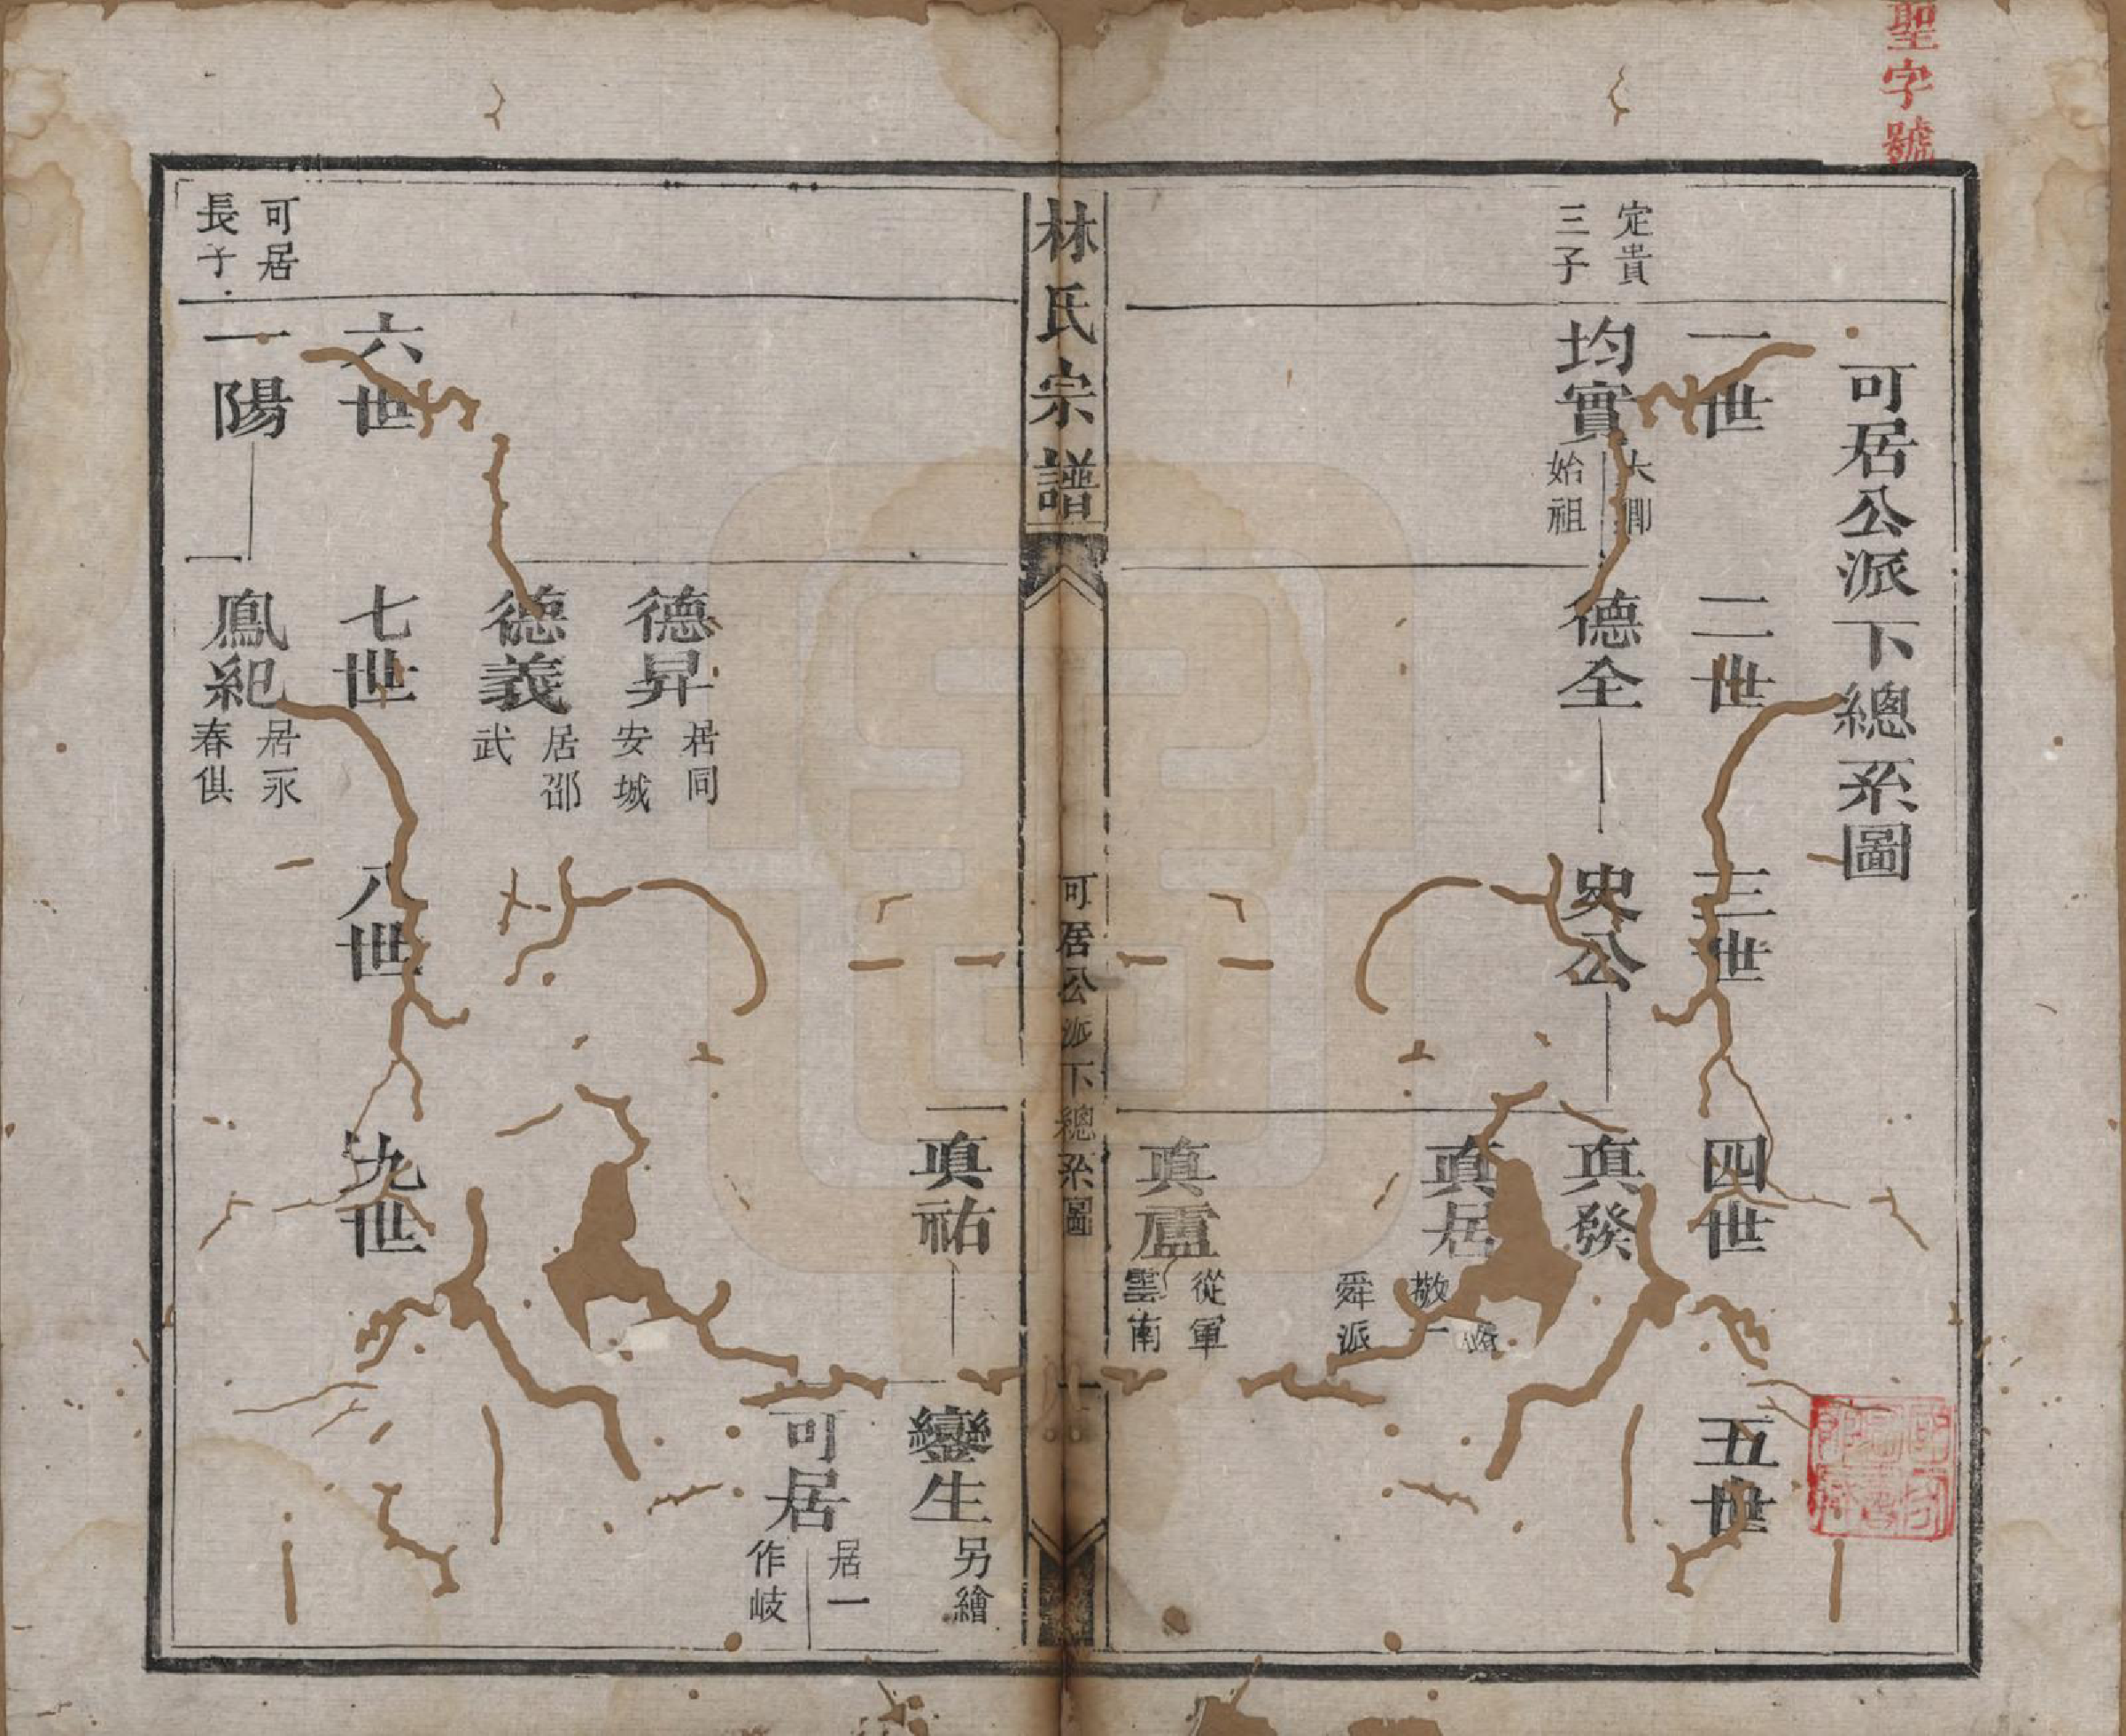 聖字號
可居公派下總系圖
一世
二世
三世
四世
五世
定貴
三子
均實
大卿
始祖
德全
史公
真發
真居
敬一
舜派
真盧
從軍
雲南
林氏宗譜
可居公派下總系圖
真祐
鑾生
另繪
可居
居一
作岐
德昇
居同
安城
德義
居邵
武
六世
七世
八世
九世
可居
長子
一陽
鳳紀
居永
春俱